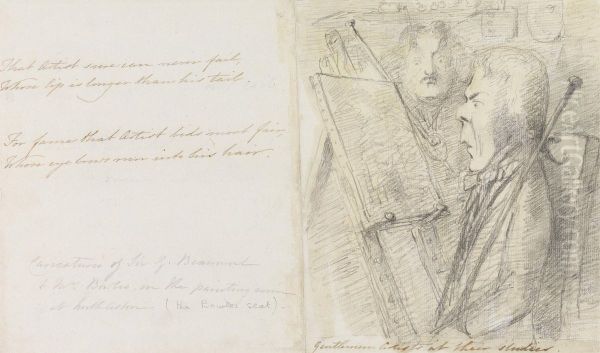 That Artist sure can never fail,
Whose lip is longer than his tail.
For fame that Artist bids most fair,
Whose eye brows run into his hair.
Caricature of Sir G. Beaumont
& Mr. Bowles, in the painting room
at North Aston (the Bowles seat).
Gentlemen Artists at their studies.